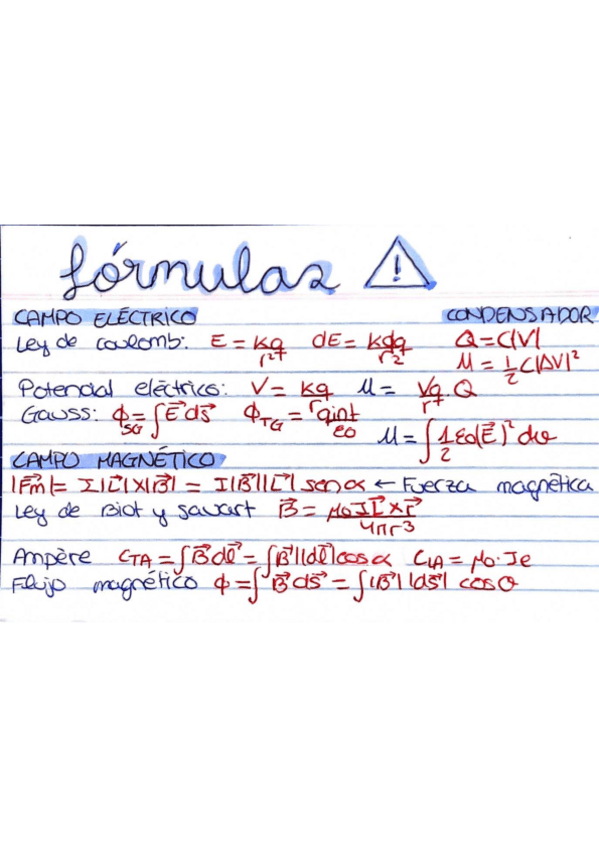 fórmulas
CAMPO ELÉCTRICO
CONDENSADOR
Ley de coulomb: E = kq/r² dE = kdq/r² Q = C|V|
U = 1/2 C|ΔV|²
Potencial eléctrico: V = kq/r U = Vq/r Q
Gauss: ϕ_SG = ∫E⃗ ds⃗ ϕ_TG = qint/ε0 U = ∫1/2 ε0(E⃗)² dv
CAMPO MAGNÉTICO
|F⃗m| = I|L⃗|×|B⃗| = I|B⃗||L⃗| sen α ← Fuerza magnética
Ley de Biot y Savart B⃗ = μ0 I L⃗ × r⃗/4πr³
Ampère C_TA = ∫B⃗ dl⃗ = ∫|B⃗||dl⃗| cos α C_LA = μ0 · Ie
Flujo magnético ϕ = ∫B⃗ ds⃗ = ∫|B⃗| |ds⃗| cos θ